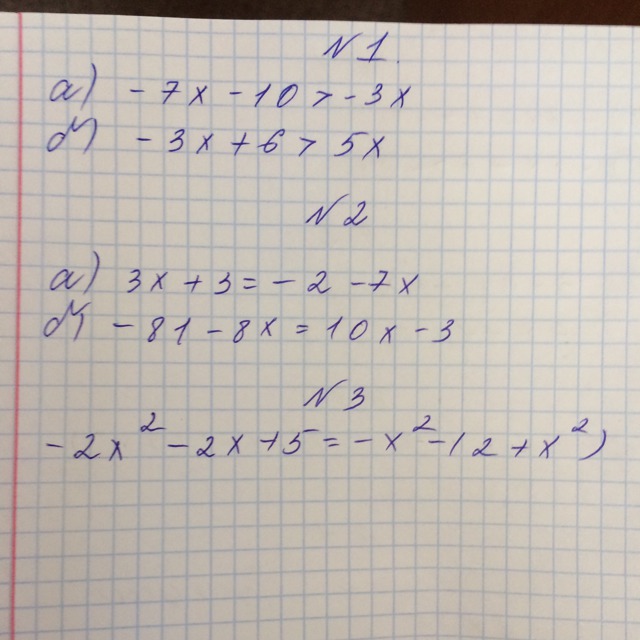 N1.
а) -7x -10 > -3x
б) -3x + 6 > 5x
N2
а) 3x + 3 = -2 -7x
б) -81 -8x = 10x -3
N3
-2x² -2x +5 = -x² -12 + x²)